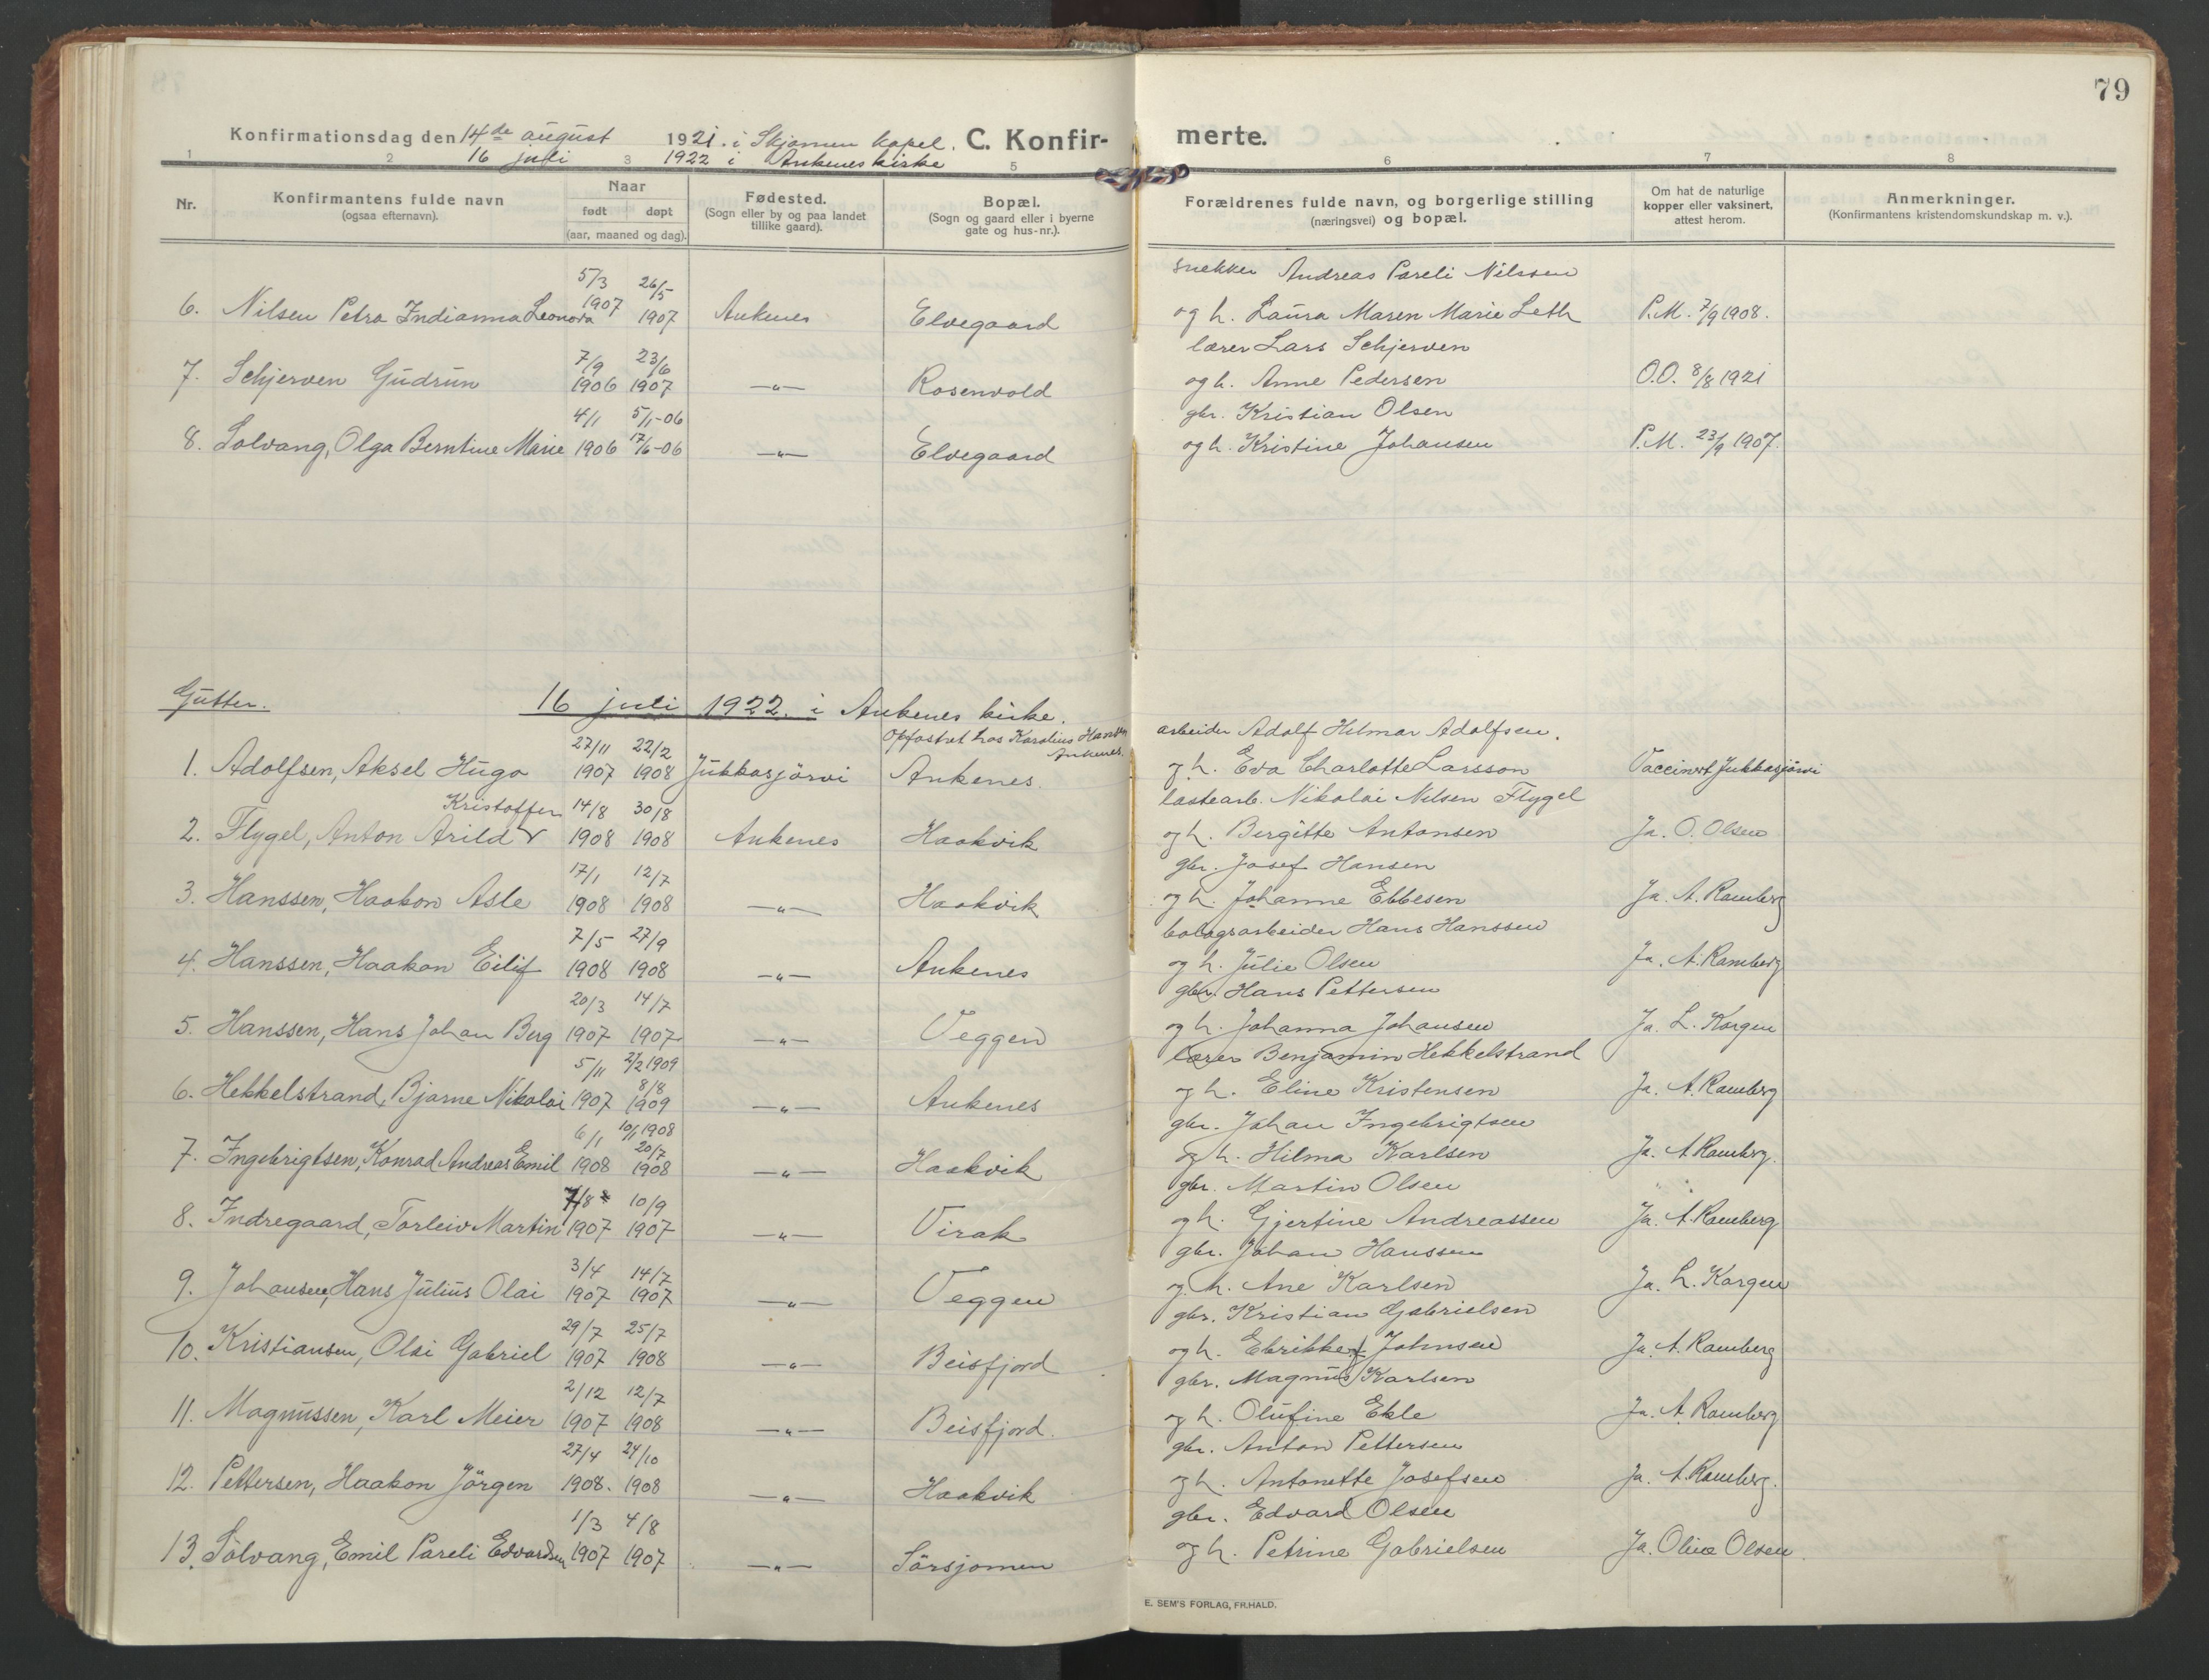 79
Konfirmationsdag den 14de august 1921. i Skjomen kapel. C. Konfirmerte.
16 juli 1922 i Ankenes kirke
1 2 3 5 6 7 8
Nr. Konfirmantens fulde navn (ogsaa efternavn). Naar født døpt (aar, maaned og dag). Fødested. (Sogn eller by og paa landet tillike gaard). Bopæl. (Sogn og gaard eller i byerne gate og hus-nr.). Forældrenes fulde navn, og borgerlige stilling (næringsvei) og bopæl. Om hat de naturlige kopper eller vaksinert, attest herom. Anmerkninger. (Konfirmantens kristendomskundskap m. v.).
5/3 26/5 snekker Andreas Pareli Nilssen
6. Nilsen Petra Indianna Leonora 1907 1907 Ankenes Elvegaard og h. Laura Maren Marie Leth P.M. 7/9 1908.
7/9 23/6 lærer Lars Schjerven
7. Schjerven Gudrun 1906 1907 —"— Rosenvold og h. Anne Pedersen O.O. 8/8 1921
4/1 5/1-06 gbr. Kristian Olsen
8. Solvang, Olga Berntine Marie 1906 17/6-06 —"— Elvegaard og h. Kristine Johansen P.M. 23/9 1907.
Gutter. 16 juli 1922. i Ankenes kirke.
27/11 22/2 Opfostret hos Karolius Hansen Ankenes. arbeider Adolf Hilmar Adolfsen.
1. Adolfsen, Aksel Hugo 1907 1908 Jukkasjärvi Ankenes. og h. Eva Charlotte Larsson Vaccinert Jukkasjärvi
Kristoffer 14/8 30/8 lastearb. Nikolai Nilsen Flygel
2. Flygel, Anton Arild 1908 1908 Ankenes Haakvik og h. Bergitte Antonsen Ja. O. Olsen
17/1 12/7 gbr. Josef Hansen
3. Hanssen, Haakon Asle 1908 1908 —"— Haakvik og h. Johanne Ebbesen Ja. A. Ramberg
7/5 27/9 bolagsarbeider Hans Hanssen
4. Hanssen, Haakon Eilif 1908 1908 —"— Ankenes og h. Julie Olsen Ja. A. Ramberg
20/3 14/7 gbr. Hans Pettersen
5. Hanssen, Hans Johan Berg 1907 1907 —"— Veggen og h. Johanna Johansen Ja. L. Korgen
5/11 2/2 1909 lærer Benjamin Hekkelstrand
6. Hekkelstrand, Bjarne Nikolai 1907 8/8 1909 —"— Ankenes og h. Eline Kristensen Ja. A. Ramberg
6/1 10/1 1908 gbr. Johan Ingebrigtsen
7. Ingebrigtsen, Konrad Andreas Emil 1908 20/7 1908 —"— Haakvik og h. Hilma Karlsen Ja. A. Ramberg.
7/8 10/9 gbr. Martin Olsen
8. Indregaard, Torleiv Martin 1907 1907 —"— Virak og h. Gjertine Andreassen Ja. A. Ramberg
3/4 14/7 gbr. Johan Hanssen
9. Johansen, Hans Julius Olai 1907 1907 —"— Veggen og h. Ane Karlsen Ja. L. Korgen
29/7 25/7 gbr. Kristian Gabrielsen
10. Kristiansen, Olai Gabriel 1907 1908 —"— Beisfjord og h. Ebrikke Johnsen Ja. A. Ramberg
2/12 12/7 gbr. Magnus Karlsen
11. Magnussen, Karl Meier 1907 1908 —"— Beisfjord. og h. Olufine Ekle Ja. A. Ramberg
27/4 24/10 gbr. Anton Pettersen
12. Pettersen, Haakon Jörgen 1908. 1908 —"— Haakvik og h. Antonette Josefsen Ja. A. Ramberg.
1/3 4/8 gbr. Edvard Olsen
13. Sölvang, Emil Pareli Edvardsen 1907 1907 —"— Sörsjomen og h. Petrine Gabrielsen Ja. Oline Olsen.
E. SEM'S FORLAG, FR.HALD.